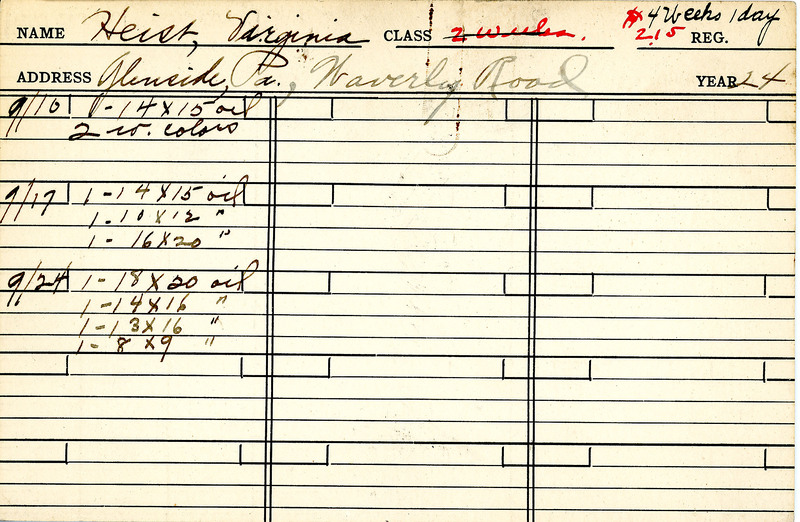 NAME Heist, Virginia CLASS 2 weeks. 4 Weeks 1 day
2.15 REG.
ADDRESS Glenside, Pa., Waverly Road YEAR 24
9/10 1-14 X 15 oil
2 w. colors
9/17 1-14 X 15 oil
1-10 X 12 "
1- 16 X 20 "
9/24 1-18 X 20 oil
1-14 X 16 "
1-13 X 16 "
1- 8 X 9 "